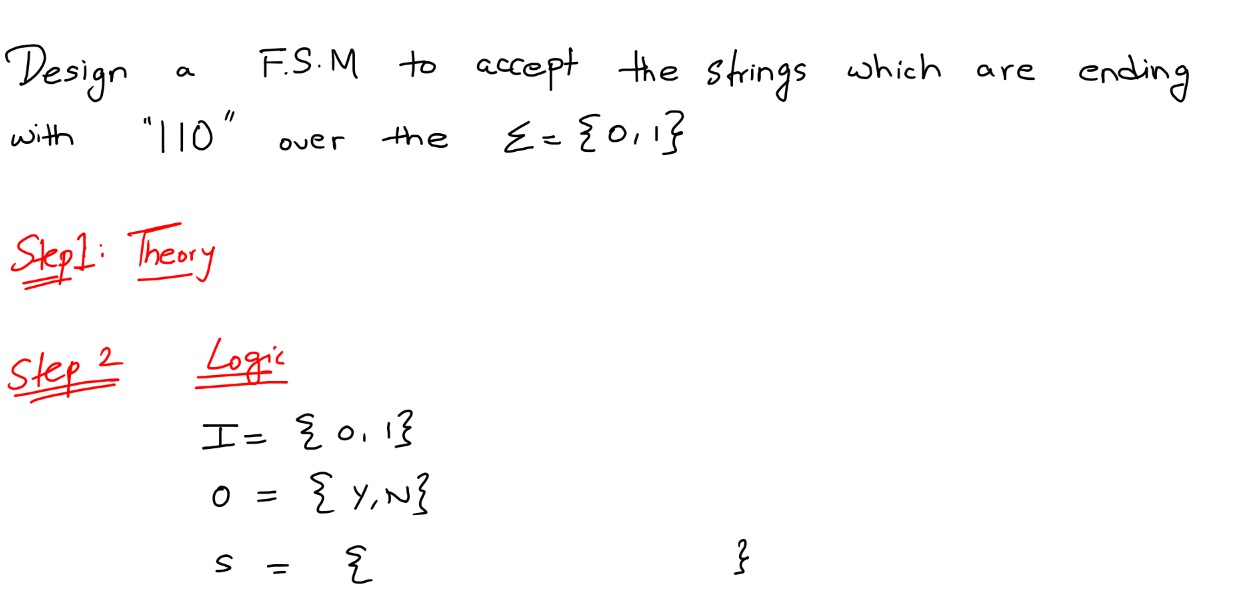 Design a F.S.M to accept the strings which are ending
with "110" over the Σ = {0,1}
Step1: Theory
Step 2 Logic
I = {0,1}
O = {Y,N}
S = { }